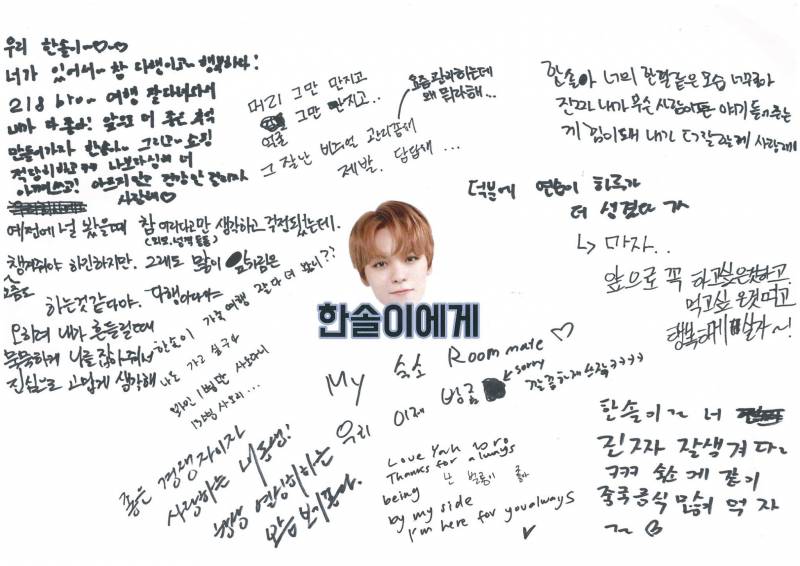 우리 한솔이~♡♡
너가 있어서~ 참 다행이고~ 행복하다!
218 bro~ 여행 잘 다녀와서
내가 다 좋아! 앞으로 더 좋은 추억
만들어가자 한솔아~ 그리고~ 쇼핑
적당히
아껴쓰고! 아프지 말고 건강만
사랑해♡
머리 그만 만지고
얼굴 그만 만지고..
그 잘난 비주얼 관리 좀 해
제발. 답답해...
요즘 관리하는데
왜 뭐라해...
한솔아 너의 한결같은 모습 너무 좋아
진짜 내가 무슨 사람이든 얘기 들어주는
게 힘이 돼 내가 더 잘할게 사랑해
덕분에 연습이 하루가
더 성겁다 가
↳ 마자..
앞으로 꼭 하고싶은것하고
먹고싶은것먹고
행복하게 살자~!
예전에 널 봤을때 참 어리다고만 생각하고 걱정됐는데.
(외모, 성격 등등)
챙겨줘야 하긴하지만. 그래도 많이
요즘도
하는것같다야. 다행이다야~
오히려 내가 흔들릴때
묵묵하게 나를 잡아줘서
진심으로 고맙게 생각해
한솔이 가족여행 잘 다녀 왔니??
나도 가고 싶구나
와인 1병만 사오너라
15병 사오리...
한솔이에게
My 숙소 Room mate ♡
우리 이제 방좀
sorry
깔끔하게 쓰자ㅋㅋㅋㅋ
좋은 경쟁자이자
사랑하는 내 동생!
항상 열심히하는
모습 보기 좋아.
Love Yah bro
Thanks for always
being
난 버논이 좋아
by my side
I'm here for you always
한솔이~ 너
진짜 잘생겨따~
ㅋㅋㅋ 숙소에 같이
중국음식 만들어 먹자
~